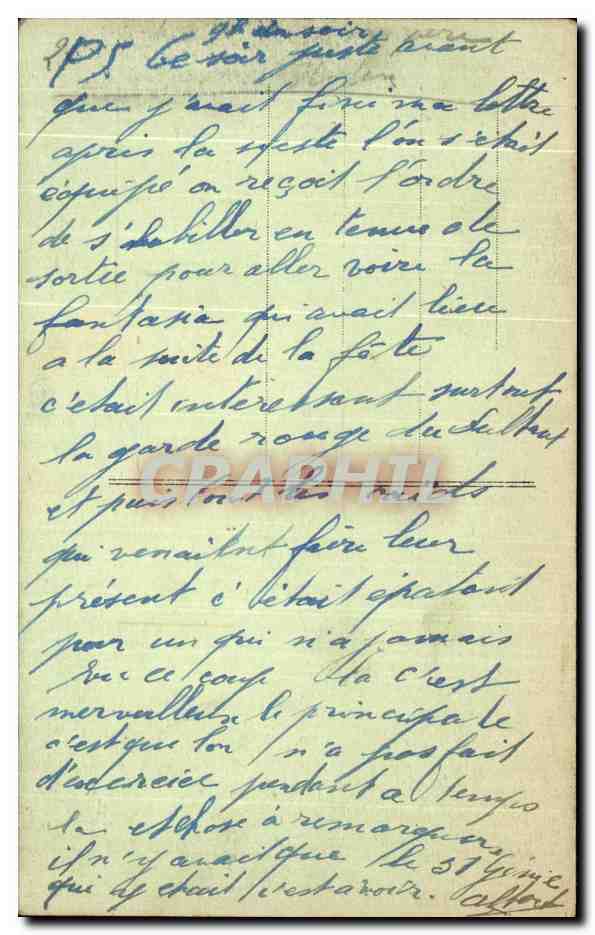 9h du soir
2 PS Ce soir juste avant
que j'avait fini ma lettre
apres la sieste l'on s'etait
équipé on reçoit l'ordre
de s'habiller en tenue de
sortie pour aller voire la
fantasia qui avait lieu
a la suite de la fête
c'etait intéressant surtout
la garde rouge du Sultant
CPAPHIL
et puis tout les caids
qui venaitnt faire leur
présent c'était épatant
pour un qui n'a jamais
vu ce coup la c'est
merveilleux le principale
c'est que l'on n'a pas fait
d'exercice pendant a temps
la et chose à remarquer
il n'y avait que le 31 Génie
qui y etait c'est a voir.
Albert